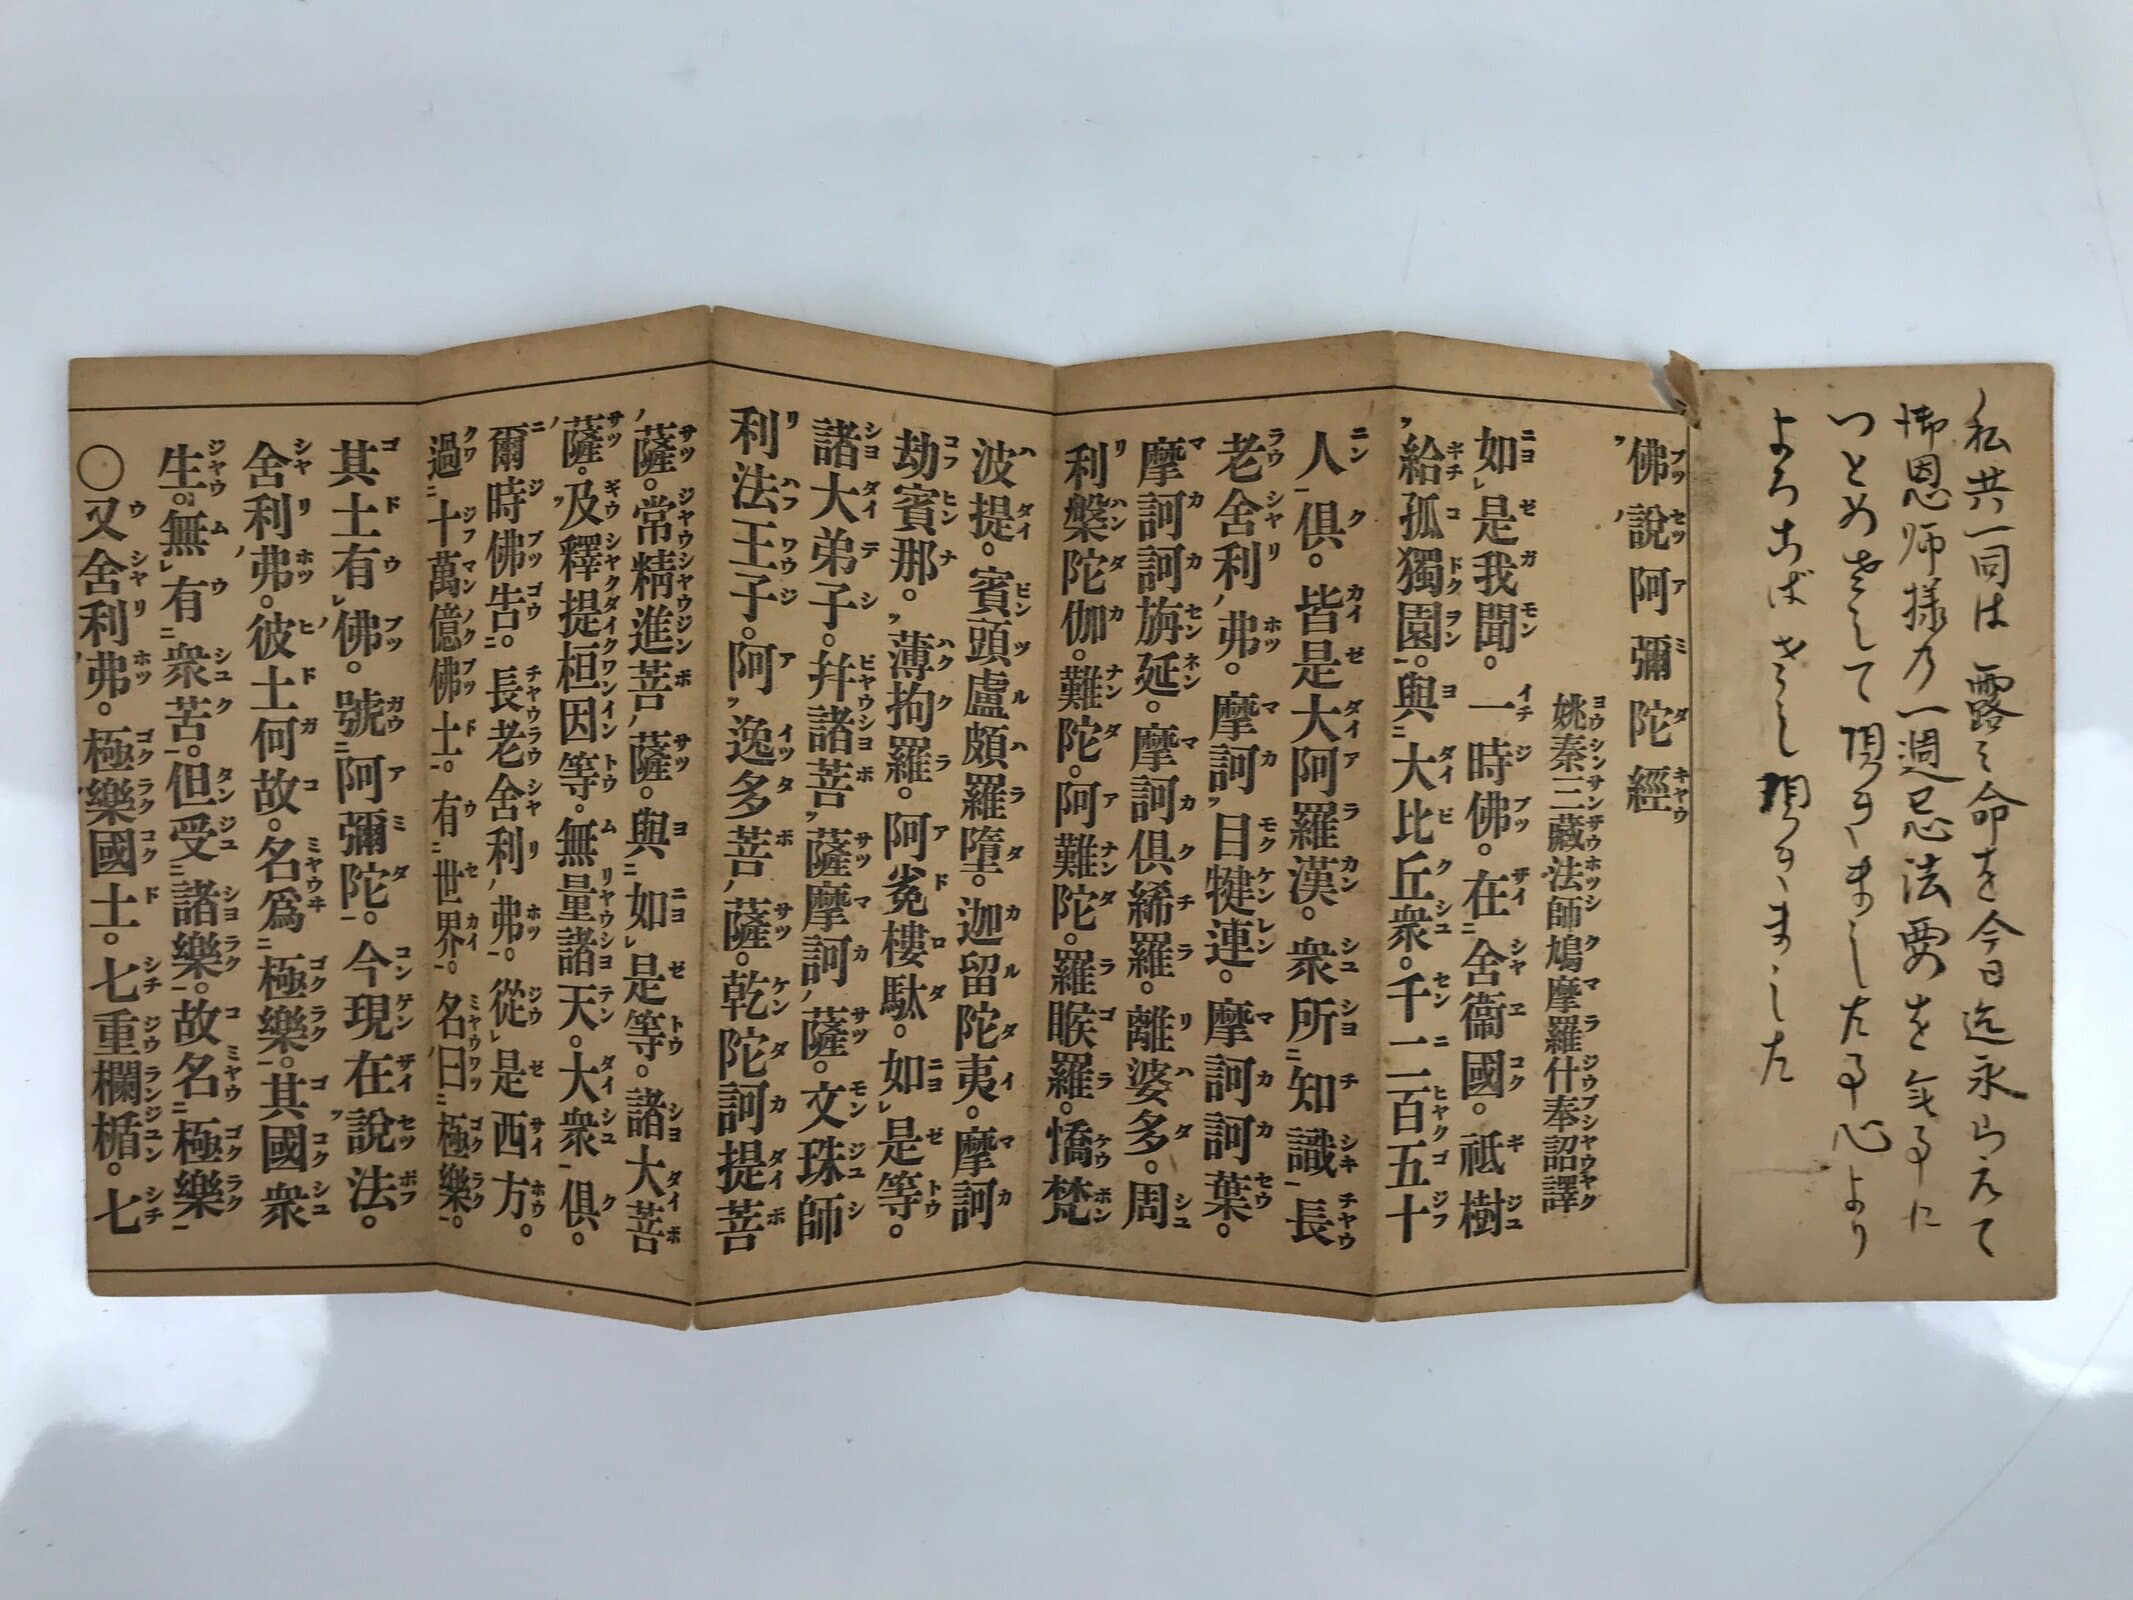 私共一同は 露之命を今日迄永らえて
御恩師様乃一週忌法要を無事に
つとめさして頂きました事心より
よろこばさして頂きました
佛說阿彌陀經
姚秦三藏法師鳩摩羅什奉詔譯
如是我聞。一時佛。在舍衞國。祇樹
給孤獨園。與大比丘衆。千二百五十
人俱。皆是大阿羅漢。衆所知識。長
老舍利弗。摩訶目犍連。摩訶訶葉。
摩訶訶旃延。摩訶俱絺羅。離婆多。周
利槃陀伽。難陀。阿難陀。羅睺羅。憍梵
波提。賓頭盧頗羅墮。迦留陀夷。摩訶
劫賓那。薄拘羅。阿㝹樓駄。如是等。
諸大弟子。幷諸菩薩摩訶薩。文珠師
利法王子。阿逸多菩薩。乾陀訶提菩
薩。常精進菩薩。與如是等。諸大菩
薩。及釋提桓因等。無量諸天。大衆俱。
爾時佛告。長老舍利弗。從是西方。
過十萬億佛土。有世界。名曰極樂。
其土有佛。號阿彌陀。今現在說法。
舍利弗。彼土何故。名爲極樂。其國衆
生。無有衆苦。但受諸樂。故名極樂
〇又舍利弗。極樂國土。七重欄楯。七